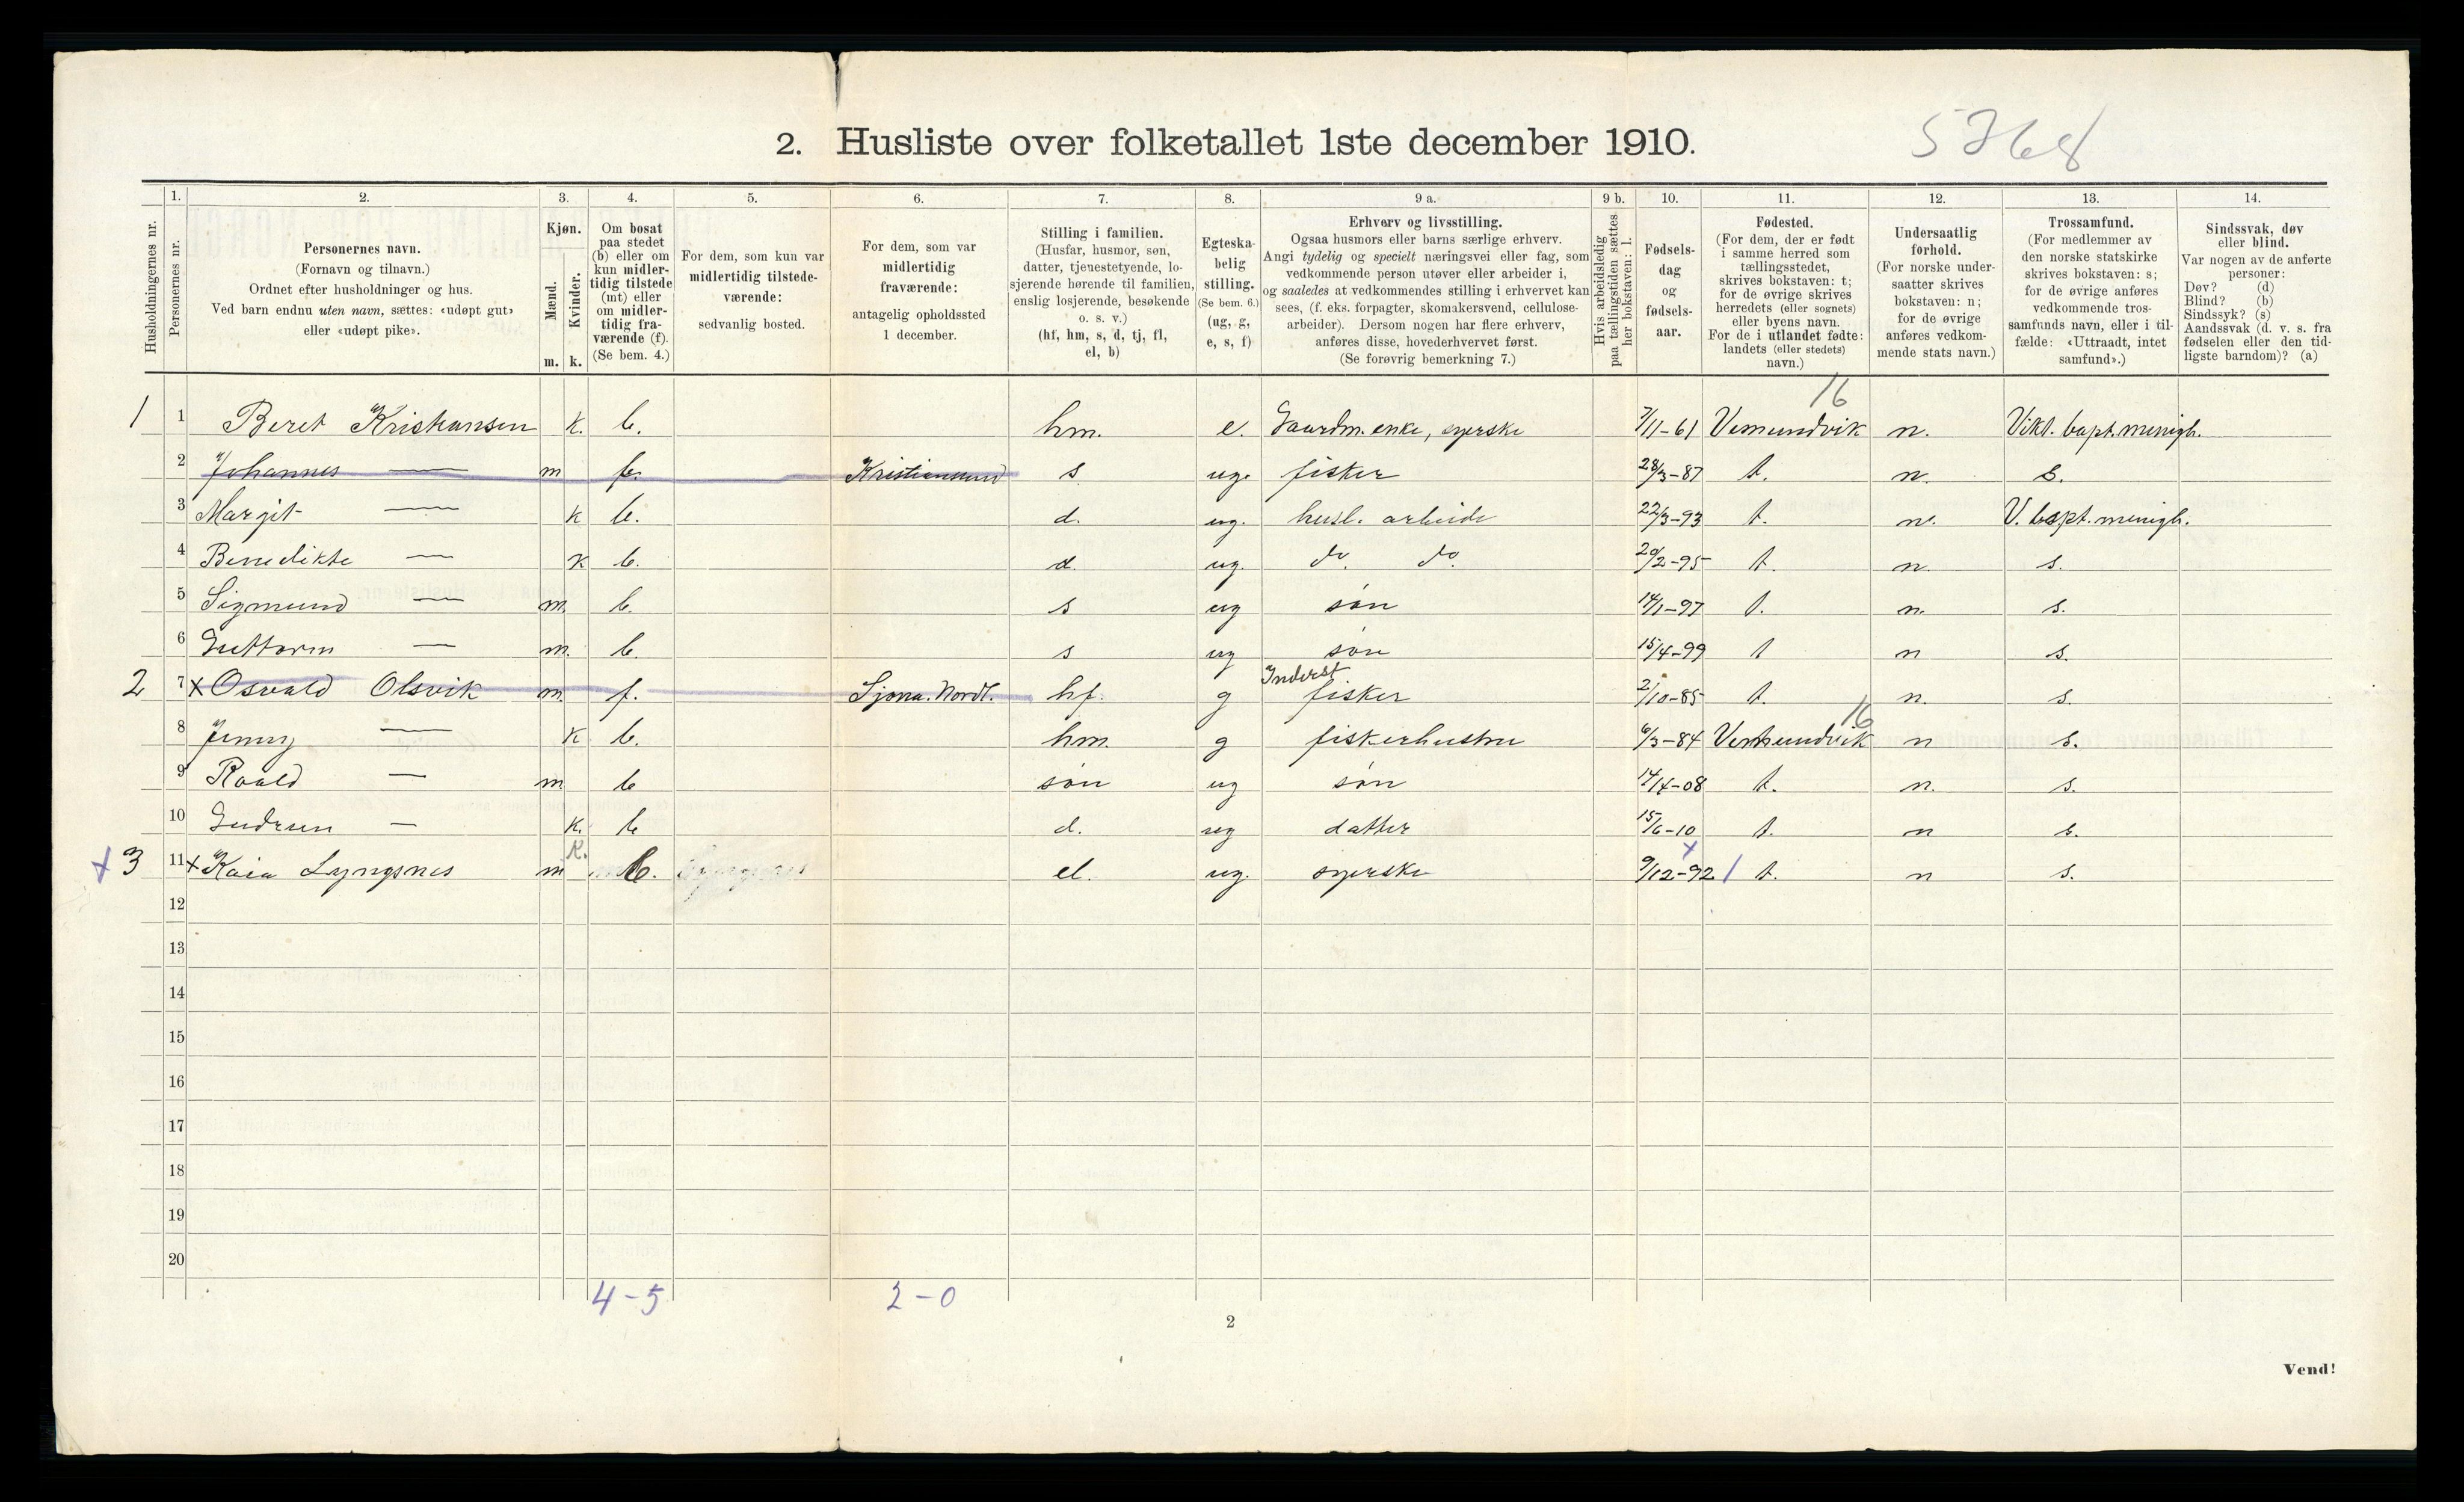 2. Husliste over folketallet 1ste december 1910.
5768
1. 2. 3. 4. 5. 6. 7. 8. 9 a. 9 b. 10. 11. 12. 13. 14.
Husholdningernes nr.
Personernes nr.
Personernes navn.
(Fornavn og tilnavn.)
Ordnet efter husholdninger og hus.
Ved barn endnu uten navn, sættes: «udøpt gut»
eller «udøpt pike».
Kjøn.
Mænd.
Kvinder.
m. k.
Om bosat
paa stedet
(b) eller om
kun midler-
tidig tilstede
(mt) eller
om midler-
tidig fra-
værende (f).
(Se bem. 4.)
For dem, som kun var
midlertidig tilstede-
værende:
sedvanlig bosted.
For dem, som var
midlertidig
fraværende:
antagelig opholdssted
1 december.
Stilling i familien.
(Husfar, husmor, søn,
datter, tjenestetyende, lo-
sjerende hørende til familien,
enslig losjerende, besøkende
o. s. v.)
(hf, hm, s, d, tj, fl,
el, b)
Egteska-
belig
stilling.
(Se bem. 6.)
(ug, g,
e, s, f)
Erhverv og livsstilling.
Ogsaa husmors eller barns særlige erhverv.
Angi tydelig og specielt næringsvei eller fag, som
vedkommende person utøver eller arbeider i,
og saaledes at vedkommendes stilling i erhvervet kan
sees, (f. eks. forpagter, skomakersvend, cellulose-
arbeider). Dersom nogen har flere erhverv,
anføres disse, hovederhvervet først.
(Se forøvrig bemerkning 7.)
Hvis arbeidsledig
paa tællingstiden sættes
her bokstaven: l.
Fødsels-
dag
og
fødsels-
aar.
Fødested.
(For dem, der er født
i samme herred som
tællingsstedet,
skrives bokstaven: t;
for de øvrige skrives
herredets (eller sognets)
eller byens navn.
For de i utlandet fødte:
landets (eller stedets)
navn.)
Undersaatlig
forhold.
(For norske under-
saatter skrives
bokstaven: n;
for de øvrige
anføres vedkom-
mende stats navn.)
Trossamfund.
(For medlemmer av
den norske statskirke
skrives bokstaven: s;
for de øvrige anføres
vedkommende tros-
samfunds navn, eller i til-
fælde: «Uttraadt, intet
samfund».)
Sindssvak, døv
eller blind.
Var nogen av de anførte
personer:
Døv? (d)
Blind? (b)
Sindssyk? (s)
Aandssvak (d. v. s. fra
fødselen eller den tid-
ligste barndom)? (a)
16
1 1 Beret Kristiansen k. b. hm. e. Gaardm. enke, syerske 7/11-61 Vemundvik n. Vikt. bapt. menigh.
2 Johannes — m f. Kristiansund s ug. fisker 28/3-87 t. n. s.
3 Margit — k b. d. ug. husl. arbeide 22/3-93 t. n. V. bapt. menigh.
4 Benedikte — k b. d. ug. do. do. 20/2-95 t. n. s.
5 Sigmund — m. b. s ug søn 14/1-97 t. n. s.
6 Guttorm — m. b. s ug søn 15/4-99 t n s.
Inderst
2 7 x Osvald Olsvik m. f. Sjona. Nordl. hf. g fisker 2/10-85 t. n. s.
16
8 Jenny — k b. hm. g fiskerhustru 6/3-84 Vemundvik n s.
9 Roald — m. b søn ug søn 14/4-08 t. n. s.
10 Gudrun — k. b d. ug datter 15/6-10 t. n s.
K.
x 3 11 x Kaia Lyngsnes m b. el. ug. syerske 9/12-92 t. n s.
12
13
14
15
16
17
18
19
20
4-5 2-0
2
Vend!